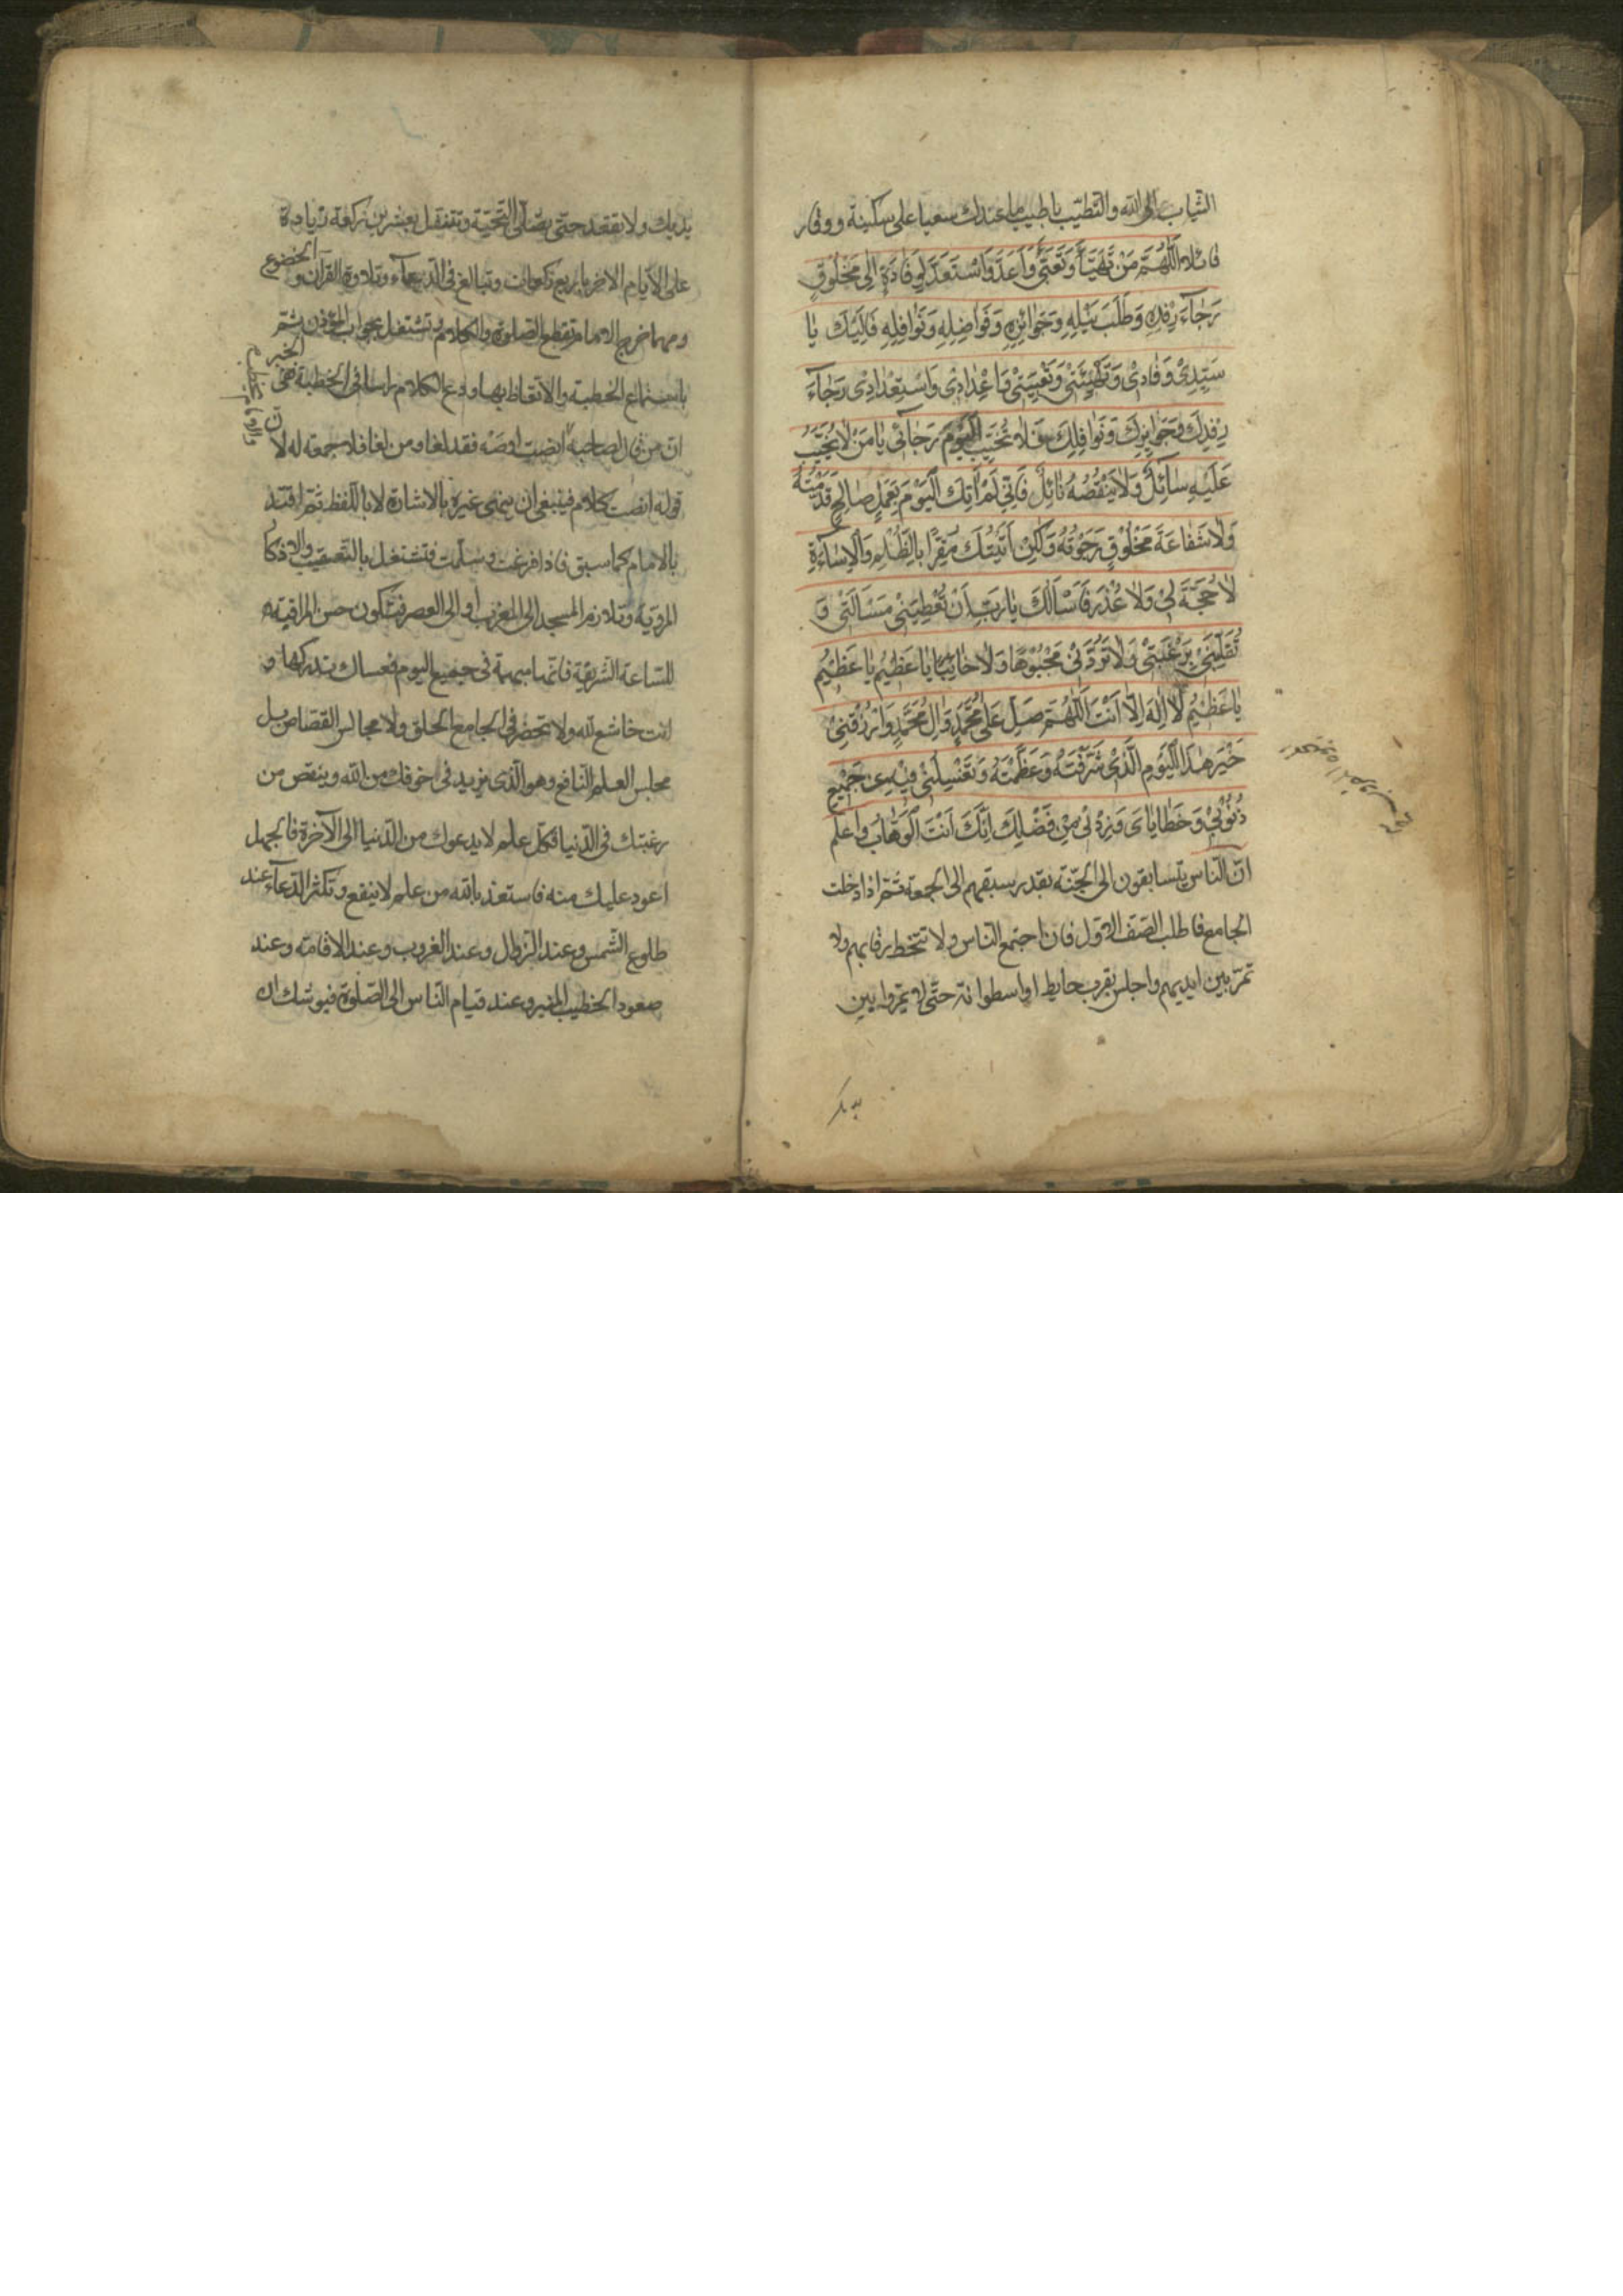 الثياب الى الله والتطيّب باطيب ما عندك سعيا على سكينة ووقار
قائلا اَللّٰهُمَّ مَنْ تَهَيَّأَ وَتَعَبَّىَٔ وَاَعَدَّ وَاسْتَعَدَّ لِوِفَادَةٍ اِلىٰ مَخْلُوقٍ
رَجٰاءَ رِفْدِهِ وَطَلَبَ نَيْلِهِ وَجَوٰائِزِهِ وَفَوٰاضِلِهِ وَنَوٰافِلِهِ فَاِلَيْكَ يٰا
سَيِّدِىْ وَفٰادَتِىْ وَتَهْيِئَتِىْ وَتَعْبِيَتِىْ وَاِعْدٰادِىْ وَاسْتِعْدٰادِىْ رَجٰاءَ
رِفْدِكَ وَجَوٰايِزِكَ وَنَوٰافِلِكَ فَلاٰ تُخَيِّبِ الْيَوْمَ رَجٰائىْ يٰا مَنْ لاٰ يُخَيَّبُ
عَلَيْهِ سٰائِلٌ وَلاٰ يَنْقُصُهُ نٰائِلٌ فَاِنّىِ لَمْ اٰتِكَ الْيَوْمَ بِعَمَلٍ صٰالِحٍ قَدَّمْتُهُ
وَلاٰ شَفٰاعَةَ مَخْلُوْقٍ رَجَوْتُهُ وَلٰكِنْ اَتَيْتُكَ مُقِرًّا بِالظُّلْمِ وَالْاِسٰاءَةِ
لاٰ حُجَّةَ لِىْ وَلاٰ عُذْرَ فَاَسْاَلُكَ يٰا رَبِّ اَنْ تُعْطِيَنِىْ مَسْاَلَتِىْ وَ
تُقَلِّبَنِىْ بِرَغْبَتِىْ وَلاٰ تَرُدَّنِىْ مَجْبُوْهًا وَلاٰ خٰايِبًا يٰا عَظِيْمُ يٰا عَظِيْمُ
يٰا عَظِيْمُ لاٰ اِلٰهَ اِلاّٰ اَنْتَ اَللّٰهُمَّ صَلِّ عَلىٰ مُحَمَّدٍ وَاٰلِ مُحَمَّدٍ وَارْزُقْنِىْ
خَيْرَ هٰذَا الْيَوْمِ الَّذِىْ شَرَّفْتَهُ وَعَظَّمْتَهُ وَتَغْسِلَنِىْ فِيْهِ مِنْ جَمِيْعِ
ذُنُوْبِىْ وَخَطٰايٰاىَ وَزِدْنِىْ مِنْ فَضْلِكَ اِنَّكَ اَنْتَ الْوَهّٰابُ واعلم
انّ الناس يتسابقون الى الجنّة بقدر سبقهم الى الجمعة ثم اذا دخلت
الجامع فاطلب الصّف الاول فان اجتمع الناس ولا تتخط رقابهم ولا
تمرّ بين ايديهم واجلس بقرب حايط او اسطوانة حتّى لا يمرّوا بين
يديك ولا تقعد حتّى تصلّى التحيّة وتتنفّل بعشرين ركعة زيادة
على الايام الاخر باربع ركعات وتبالغ فى الدعاء وتلاوة القران و
الخضوع
ومهما خرج الامام تقطع الصلوة والكلام وتشتغل بجواب المؤذن ثم
باستماع الخطبة والاتّعاظ بها ودع الكلام راسا فى الخطبة ففى
الخبر
انّ من قال لصاحبه انصت اوصَهْ فقد لغا ومن لغا فلا جمعة له لا
نّ
قوله انصت كلام فينبغى ان ينهى غيره بالاشارة لا باللفظ ثمّ اقتد
بالامام كما سبق فاذا فرغت وسلّمت فتشتغل بالتعقيب والاذكا
المرويّة وتلازم المسجد الى المغرب او الى العصر فتكون حسن المراقبة
للسّاعة الشريفة فانّها مبهمة فى جميع اليوم فعساك تدركها و
انت خاشع للّه ولا تحضر فى الجامع الحلق ولا مجالس القصّاص بل
مجلس العلم النافع وهو الذى يزيد فى خوفك من الله وينقص من
رغبتك فى الدّنيا فكلّ علم لا يدعوك من الدنيا الى الآخرة فالجهل
اعود عليك منه فاستعذ بالله من علم لا ينفع وتكثر الدّعاء عند
طلوع الشّمس وعند الزوال وعند الغروب وعند الاقامة وعند
صعود الخطيب المنبر وعند قيام النّاس الى الصّلوة فيوشك ان